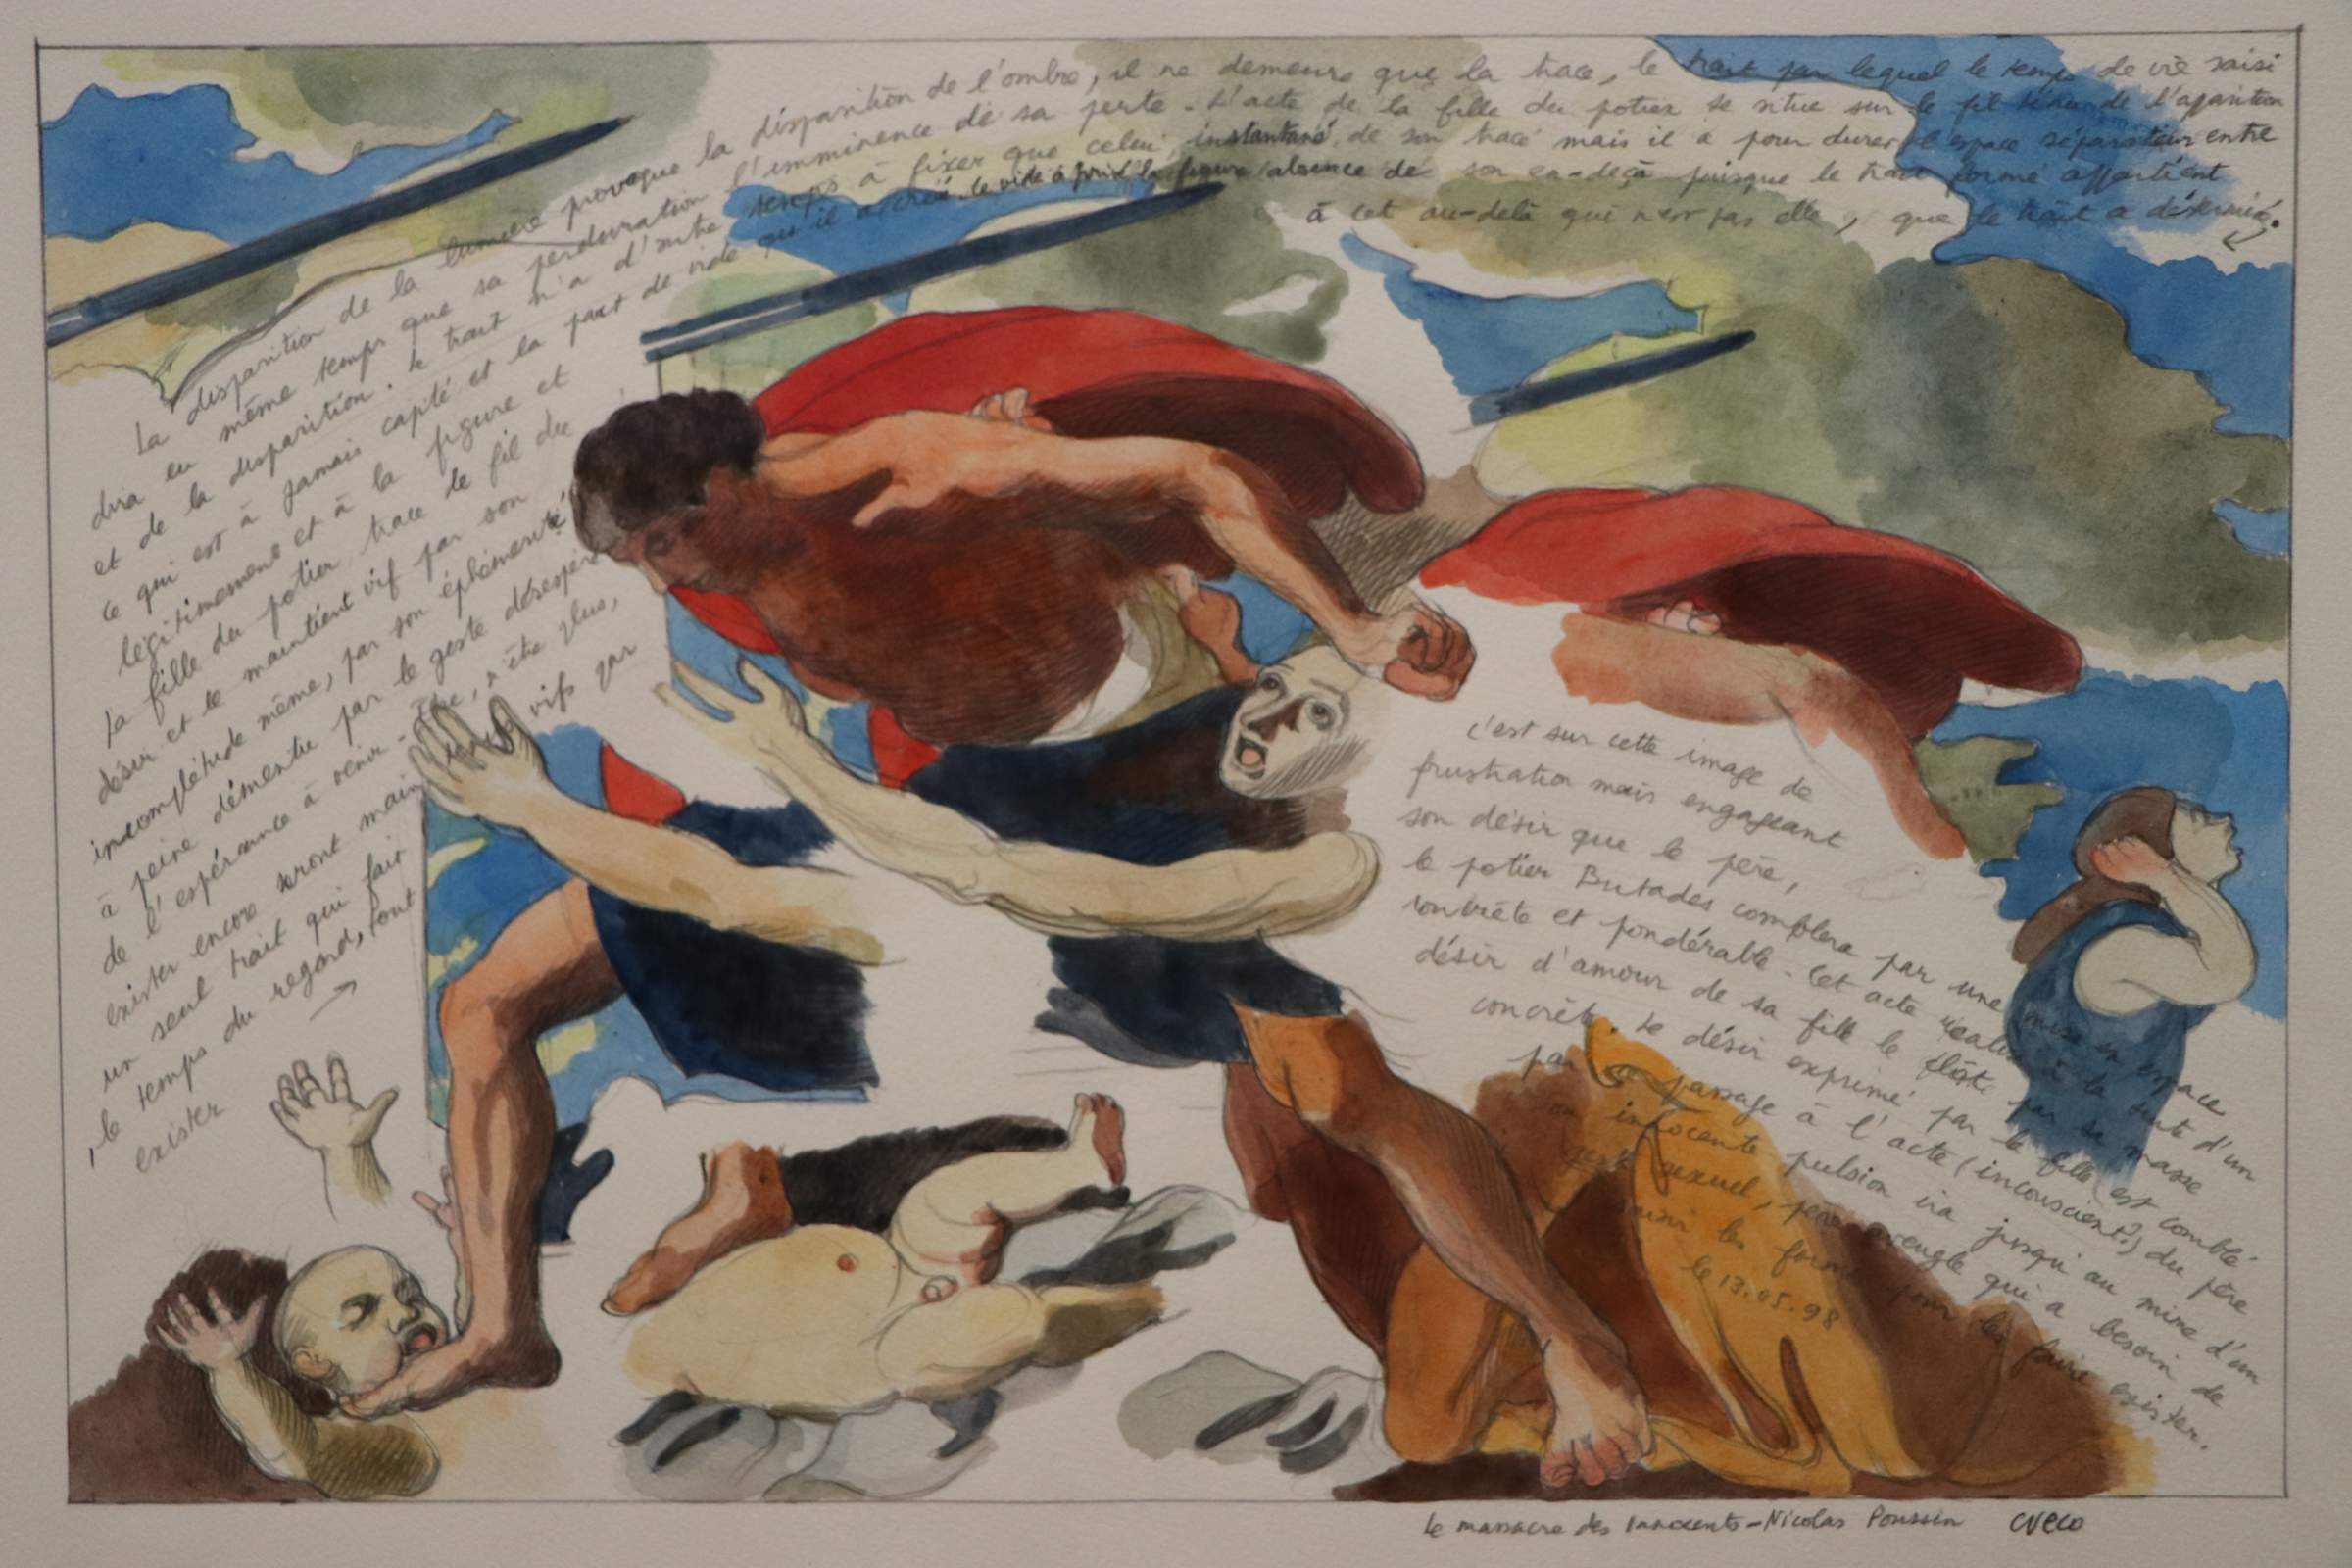 La disparition de la lumière provoque la disparition de l'ombre, il ne demeure que la trace, le trait par lequel le temps de vie saisi
dira en même temps que sa perduration l'imminence de sa perte - L'acte de la fille du potier se situe sur le fil ténu de l'apparition
et de la disparition. Le trait n'a d'autre temps à fixer que celui, instantané, de son tracé mais il a pour durer l'espace séparateur entre
ce qui est à jamais capté et la part de vide qu'il a créé. le vide à la figure/absence de son en-deçà puisque le trait formé appartient
légitimement et à la figure et
à cet au-delà qui n'est pas elle, que le trait a déterminé.
La fille du potier, trace le fil du
désir et le maintient vif par son
incomplétude même, par son éphémérité
à peine démentie par le geste désespéré
de l'espérance à venir - être, n'être plus,
exister encore seront vifs par
un seul trait qui fait
le temps du regard, tout
exister
c'est sur cette image de
frustration mais engageant
son désir que le père,
le potier Butades comblera par une mise en espace
concrète et pondérable - Cet acte réalisé à la suite d'un
désir d'amour de sa fille le flôte par sa masse
concrète. Le désir exprimé par la fille est comblé
par un passage à l'acte (inconscient?) du père
on innocente pulsion ira jusqu'au mime d'un
geste sexuel, père aveugle qui a besoin de
saisir les formes pour les faire exister.
le 13.05.98
Le massacre des Innocents - Nicolas Poussin CUECO